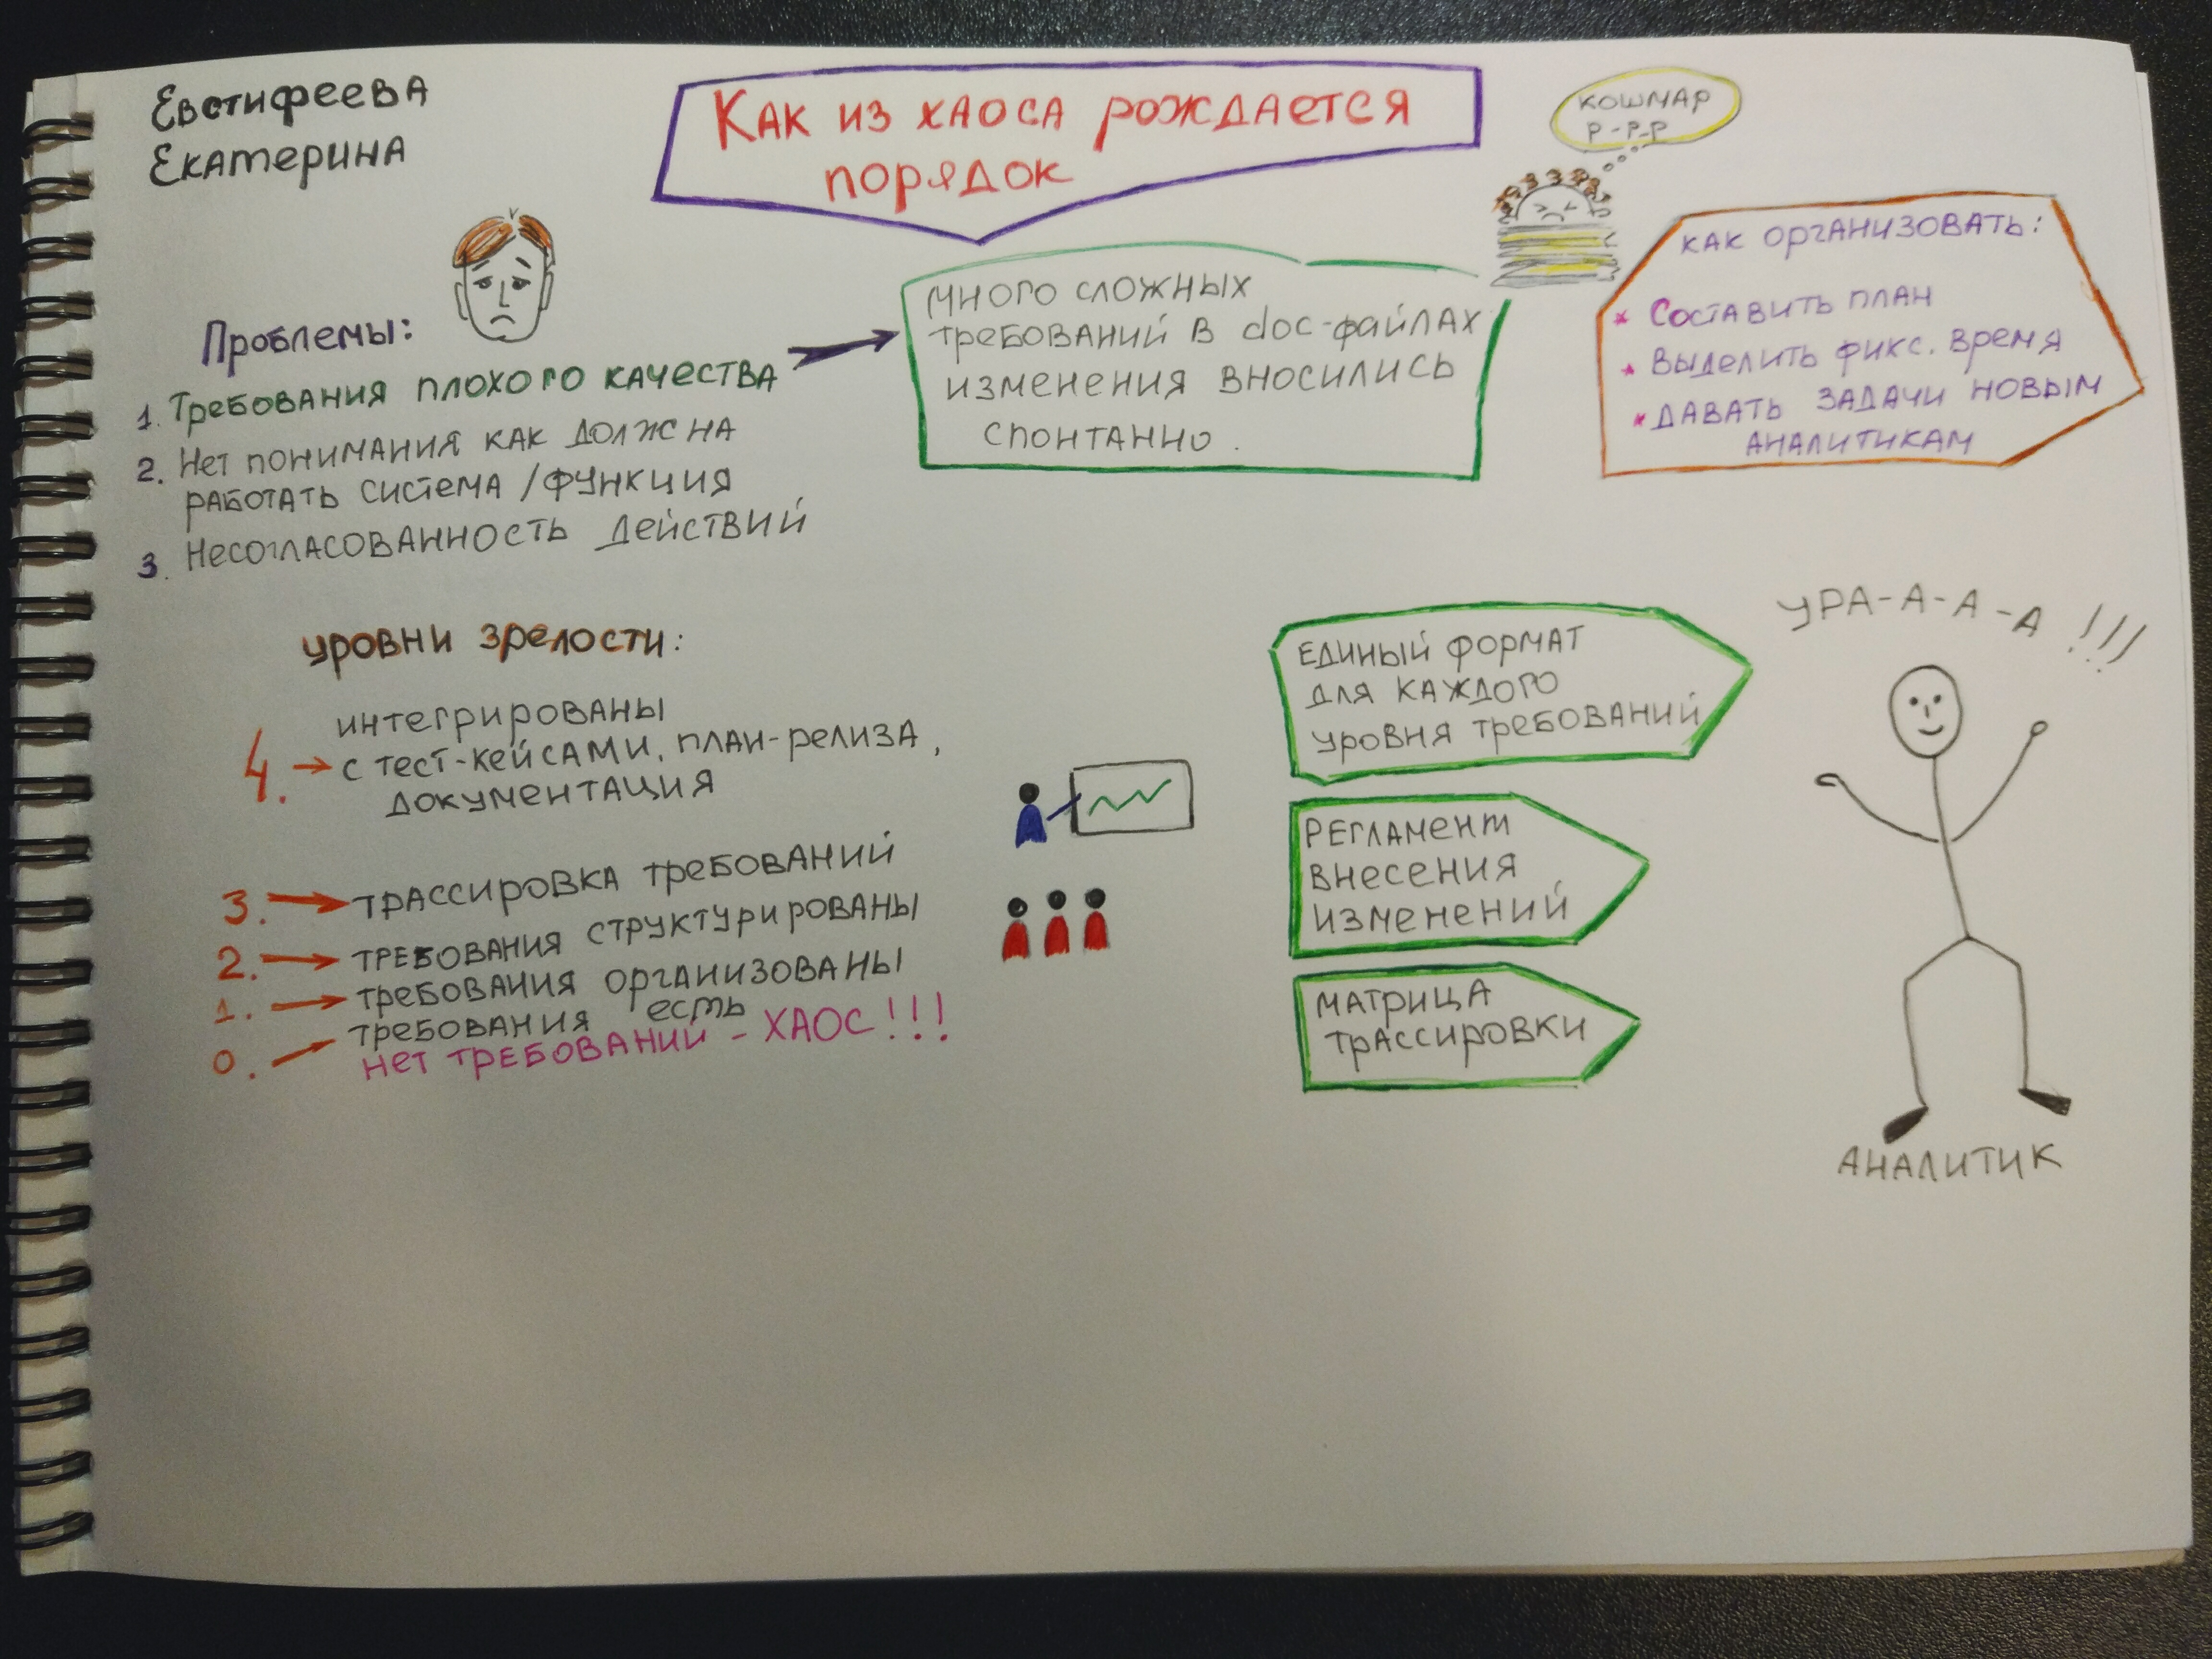 Евстифеева
Екатерина
Как из хаоса рождается
порядок
кошмар
р-р-р
Проблемы:
1. Требования плохого качества
2. Нет понимания как должна
работать система/функция
3. Несогласованность действий
много сложных
требований в doc-файлах
изменения вносились
спонтанно.
как организовать:
* Составить план
* Выделить фикс. время
* Давать задачи новым
аналитикам
уровни зрелости:
4. → интегрированы
с тест-кейсами, план-релиза,
документация
3. → трассировка требований
2. → требования структурированы
1. → требования организованы
0. → требования есть
нет требований - ХАОС!!!
единый формат
для каждого
уровня требований
Регламент
внесения
изменений
матрица
трассировки
УРА-А-А-А!!!
аналитик